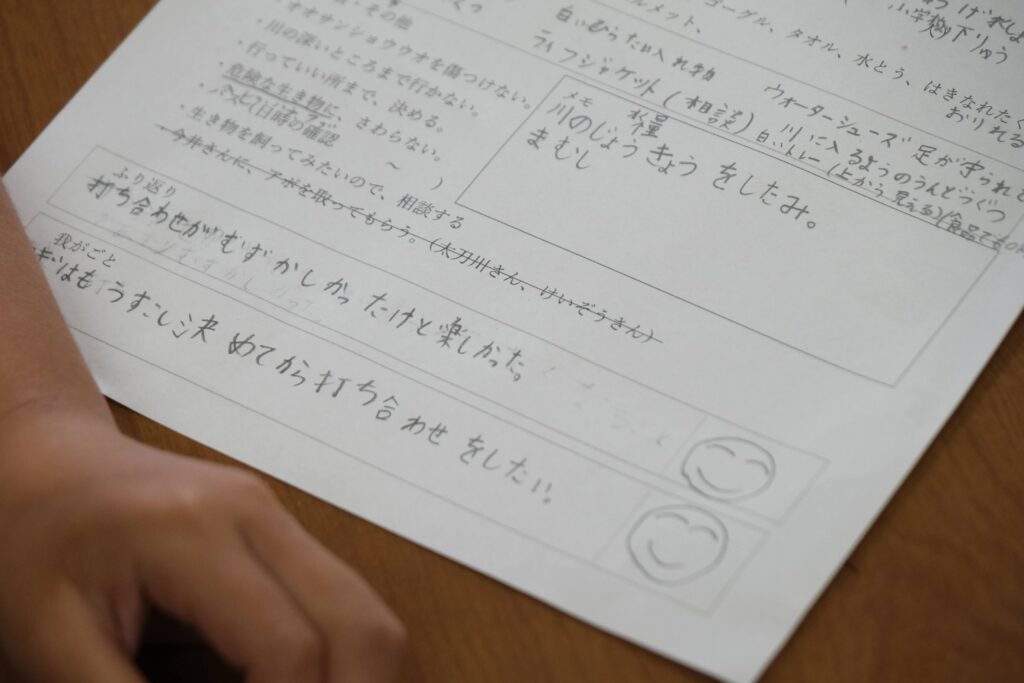 ・その他
・オオサンショウウオを傷つけない。
・川の深いところまで行かない。
・行っていい所まで、決める。
・危険な生き物に、さわらない。
・バスと1日時の確認
～ )
・生き物を飼ってみたいので、相談する
・今井さんに、アポを取ってもらう。
小学校下りゅう
ゴーグル、タオル、水とう、はきなれたくつ
ルメット、
白いひらたい入れ物
ウォーターシューズ
ライフジャケット(相談)
川に入るようのうんどうぐつ
白いトレー(上から見える)
メモ
水量
川のじょうきょうをしたみ。
まむし
ふり返り
打ち合わせがむずかしかったけど楽しかった。
我がごと
はもうすこし決めてから打ち合わせをしたい。